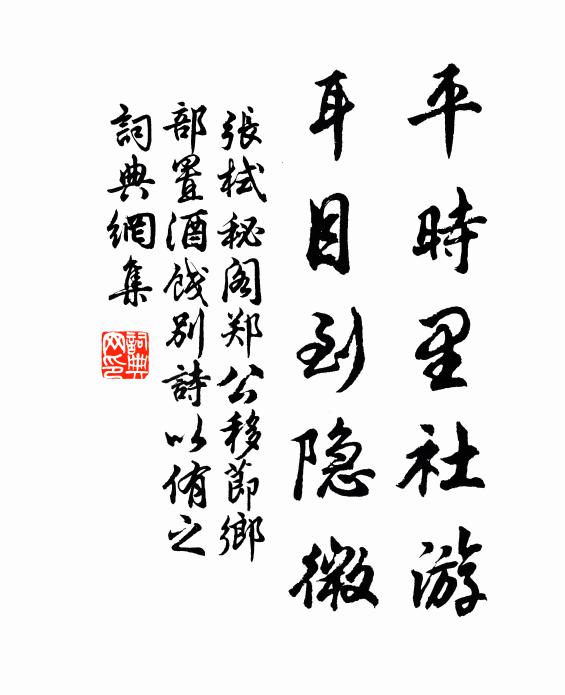 平時里社游
耳目到隐微
張栻秘阁郑公移節鄉
部置酒餞别詩以侑之
詞典網集
詞典网印